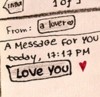 1 of 1
From: a lover
A MESSAGE FOR YOU
today, 17:17 PM
LOVE YOU